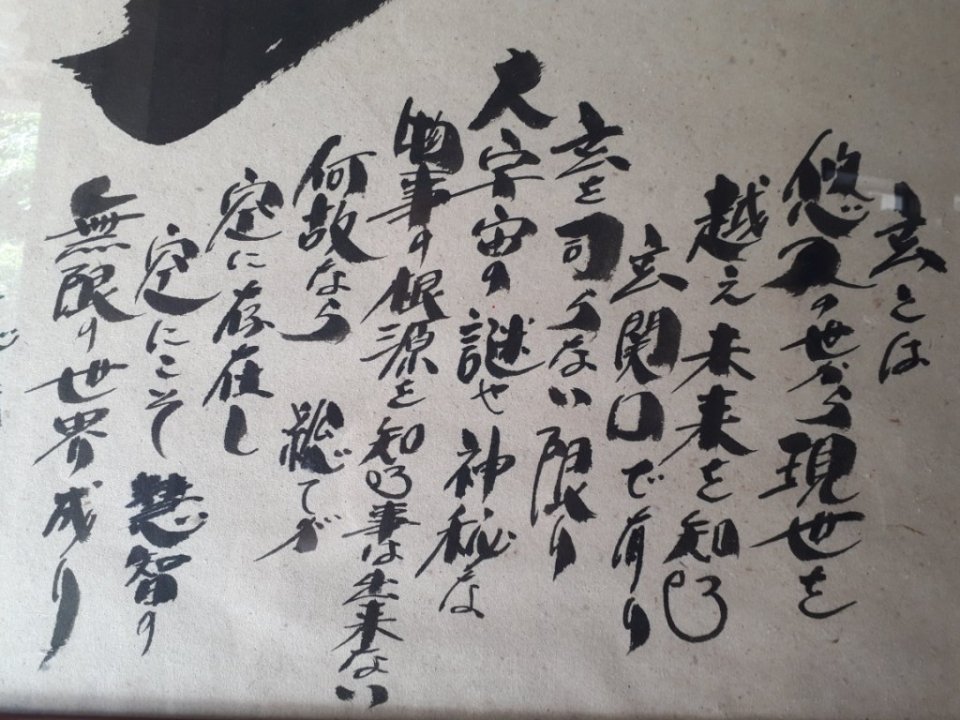 玄とは
悠久の世から現世を
越え未来を知る
玄関口で有り
玄を司らない限り
大宇宙の謎や神秘な
物事の根源を知る事は出来ない
何故なら 総てが
空に存在し
空にこそ 慧智の
無限の世界成り